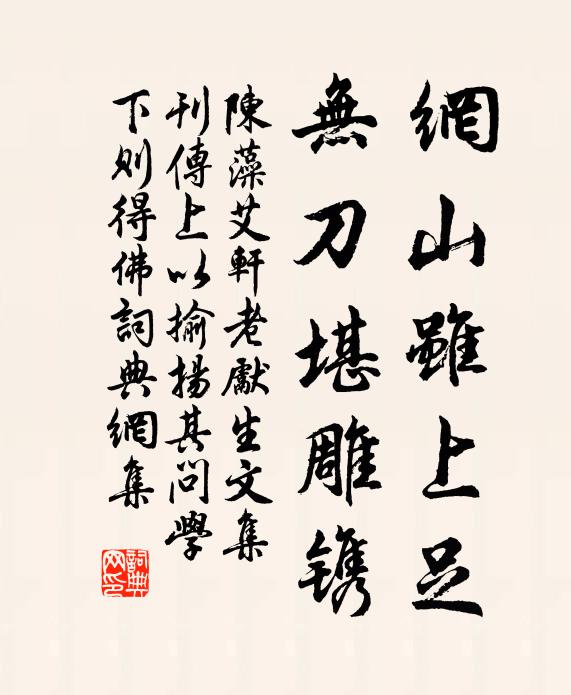 網山雖上足
無刀堪雕鐫
陳藻艾軒老獻生文集
刊傳上以揄揚其問學
下則得佛詞典網集
詞典网印